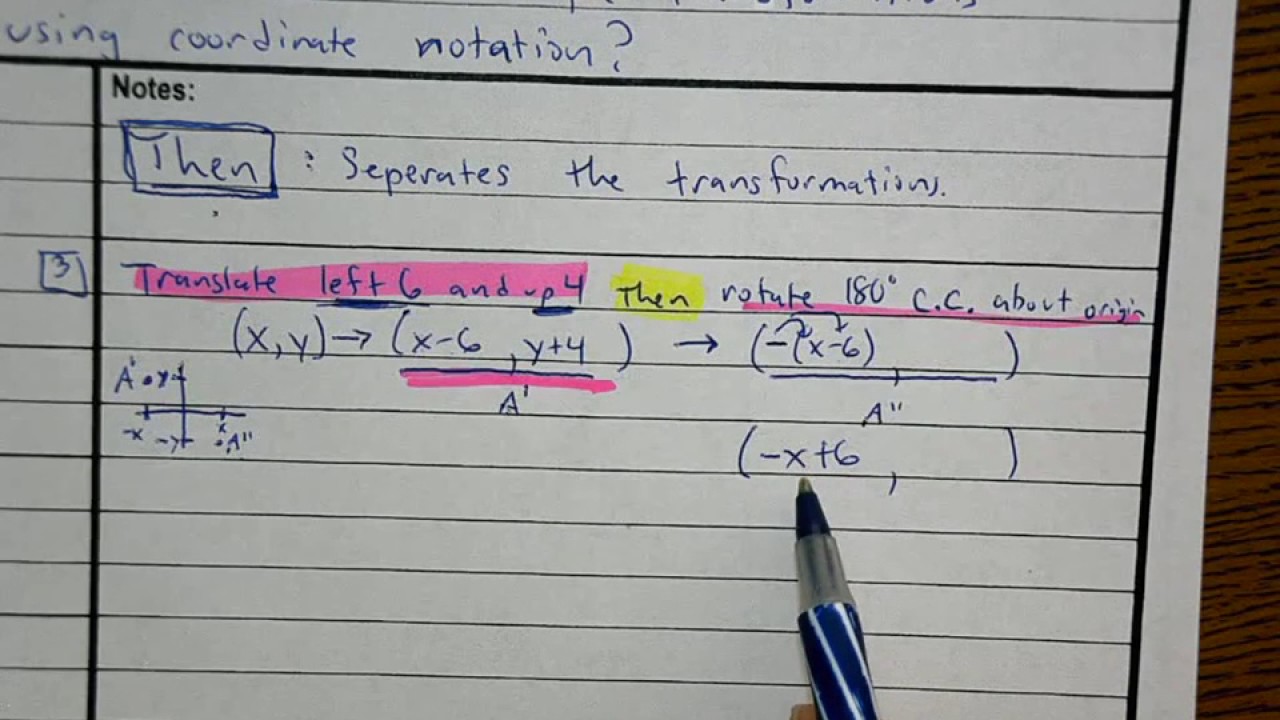 using coordinate notation?
Notes:
Then : Seperates the transformations.
3 Translate left 6 and up 4 Then rotate 180° C.C. about origin
(x,y) → (x-6, y+4) → (-(x-6), )
A' A''
A' y
-x x
-y A''
(-x+6, )